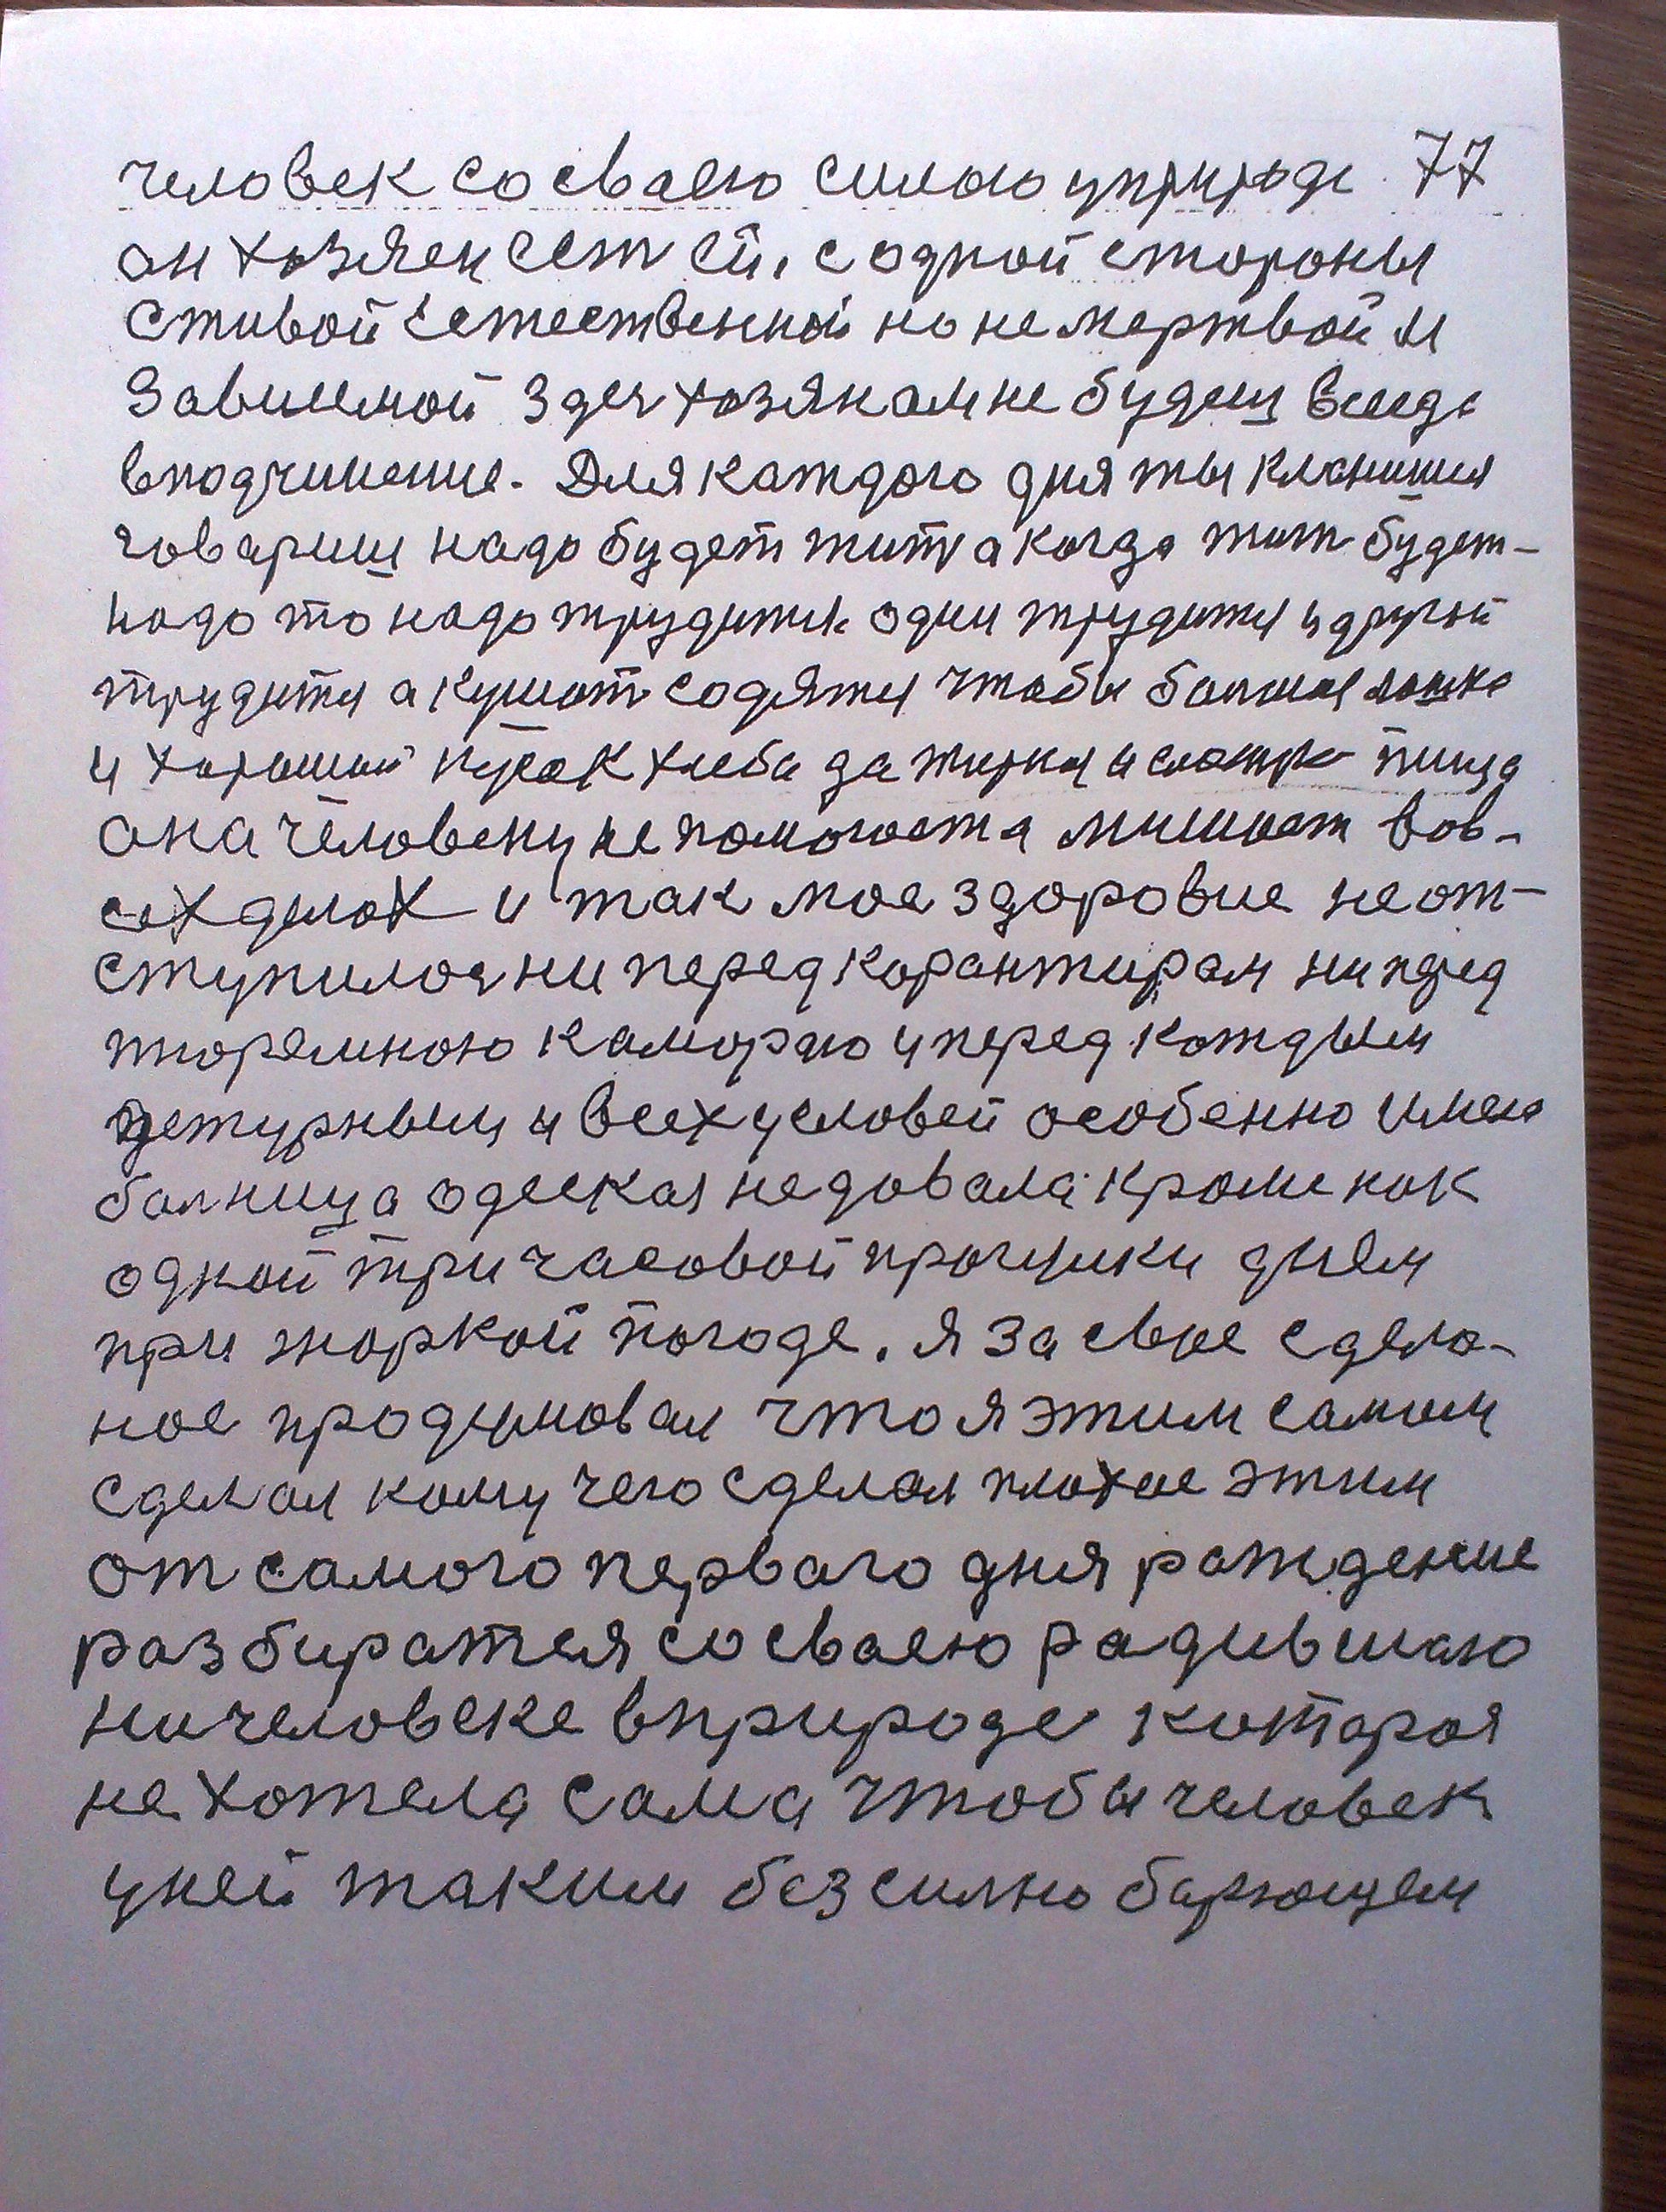 человек со сваею силою уприроде 77
он хозяен сет ей, с одной стороны
стивой Естественной но не мертвой и
Зависемой Здес хозяином не будеш всегда
вподчинение. Для каждого дня ты кланишся
говариш надо будет жит а когда жит будет-
надо то надо трудится один трудится и другой
трудится а кушат содятся чтобы балшая лошка
и хороший кусок хлеба да жирная и пища
она человеку не помогоет а мишает вов-
сех делах и так мое здоровие не от-
ступилося ни перед карантирам ни перед
тюремною каморою и перед каждым
дежурным и всех условей особенно имею
балница одеская недовала кроме как
одной три часовой прогулки днем
при жаркой погоде. я за свое сдела-
ное продумовал что я этим самим
сделал кому чего сделал плохое этим
от самого перваго дня раждение
разбирался со сваею радившаю
ни человеке вприроде котароя
не хотела сама чтобы человек
уней таким безсилно барющем